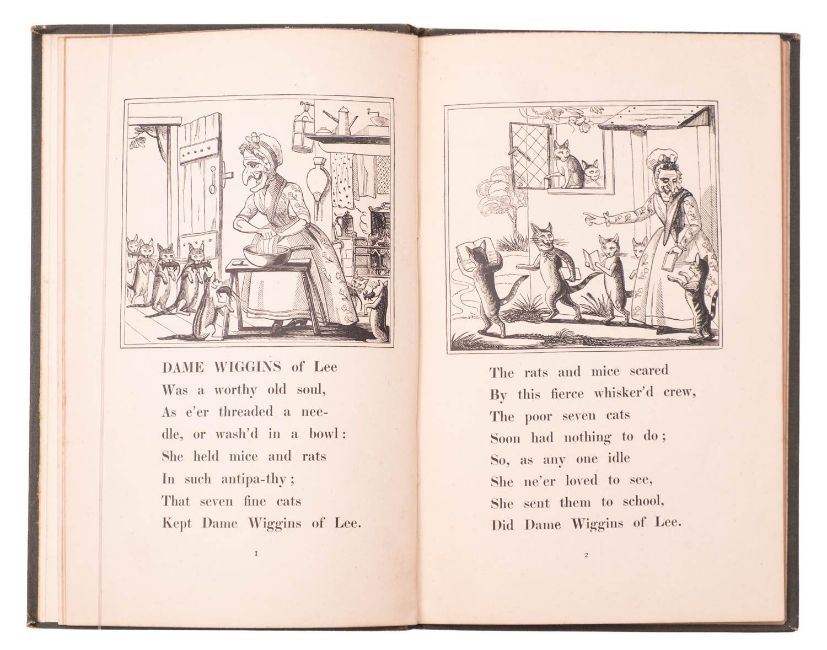 DAME WIGGINS of Lee
Was a worthy old soul,
As e'er threaded a nee-
dle, or wash'd in a bowl:
She held mice and rats
In such antipa-thy;
That seven fine cats
Kept Dame Wiggins of Lee.
1
The rats and mice scared
By this fierce whisker'd crew,
The poor seven cats
Soon had nothing to do;
So, as any one idle
She ne'er loved to see,
She sent them to school,
Did Dame Wiggins of Lee.
2